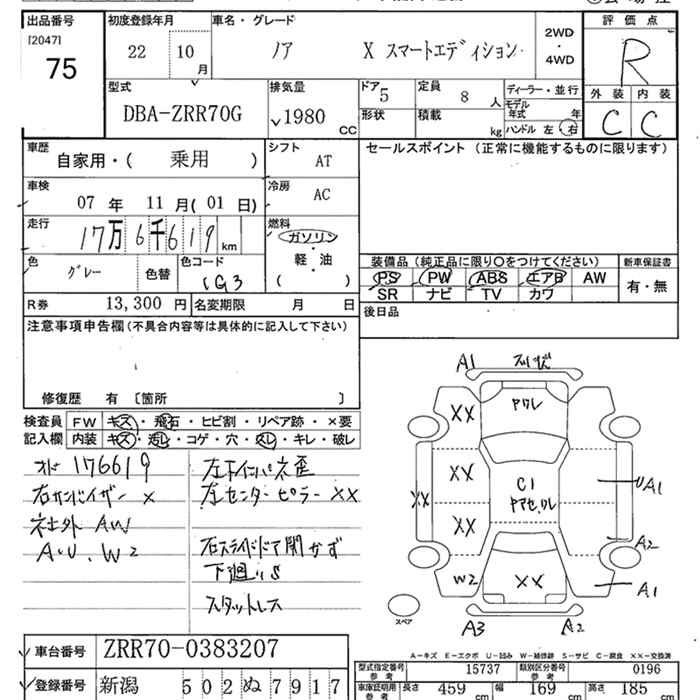 出品番号 初度登録年月 車名・グレード 評価点
[2047]
75
22 10 月
ノア X スマートエディション
2WD
・
4WD
R
外装 内装
C C
型式
DBA-ZRR70G
排気量
1980 CC
ドア 5
形状
定員 8 人
積載 kg
ディーラー・並行
モデル
年式 年
ハンドル 左 右
車歴
自家用・( 乗用 )
シフト AT
セールスポイント (正常に機能するものに限ります)
車検
07 年 11 月(01 日)
冷房 AC
走行
17万6千619 km
燃料
ガソリン
軽・油
( )
色 グレー 色替 色コード 1G3
装備品(純正品に限り○をつけてください) 新車保証書
PS PW ABS エアB AW
SR ナビ TV カワ
有・無
R券 13,300 円 名変期限 月 日
後日品
注意事項申告欄(不具合内容等は具体的に記入して下さい)
修復歴 有 〔箇所 〕
検査員
記入欄
FW キズ・飛石・ヒビ割・リペア跡・×要
内装 キズ・汚レ・コゲ・穴・スレ・キレ・破レ
オド 176619
右サンバイザー ×
ネ社外 AW
A・U、W2
左センターピラー ××
右スライドドア開かず
下廻りS
スタットレス
A1
××
××
××
××
C1
W2
××
UA1
A2
A1
A3 A2
スペア
A-キズ E-エクボ U-凹み W-補修跡 S-サビ C-腐食 ××-交換済
車台番号 ZRR70-0383207
登録番号 新潟 502ぬ7917
型式指定番号
参考
15737
類別区分番号
参考
0196
車庫証明用
参考
長さ 459 cm 幅 169 cm 高さ 185 cm